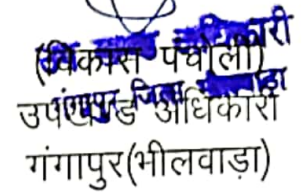 (विकास पंचोली)
उपखण्ड अधिकारी
गंगापुर(भीलवाड़ा)